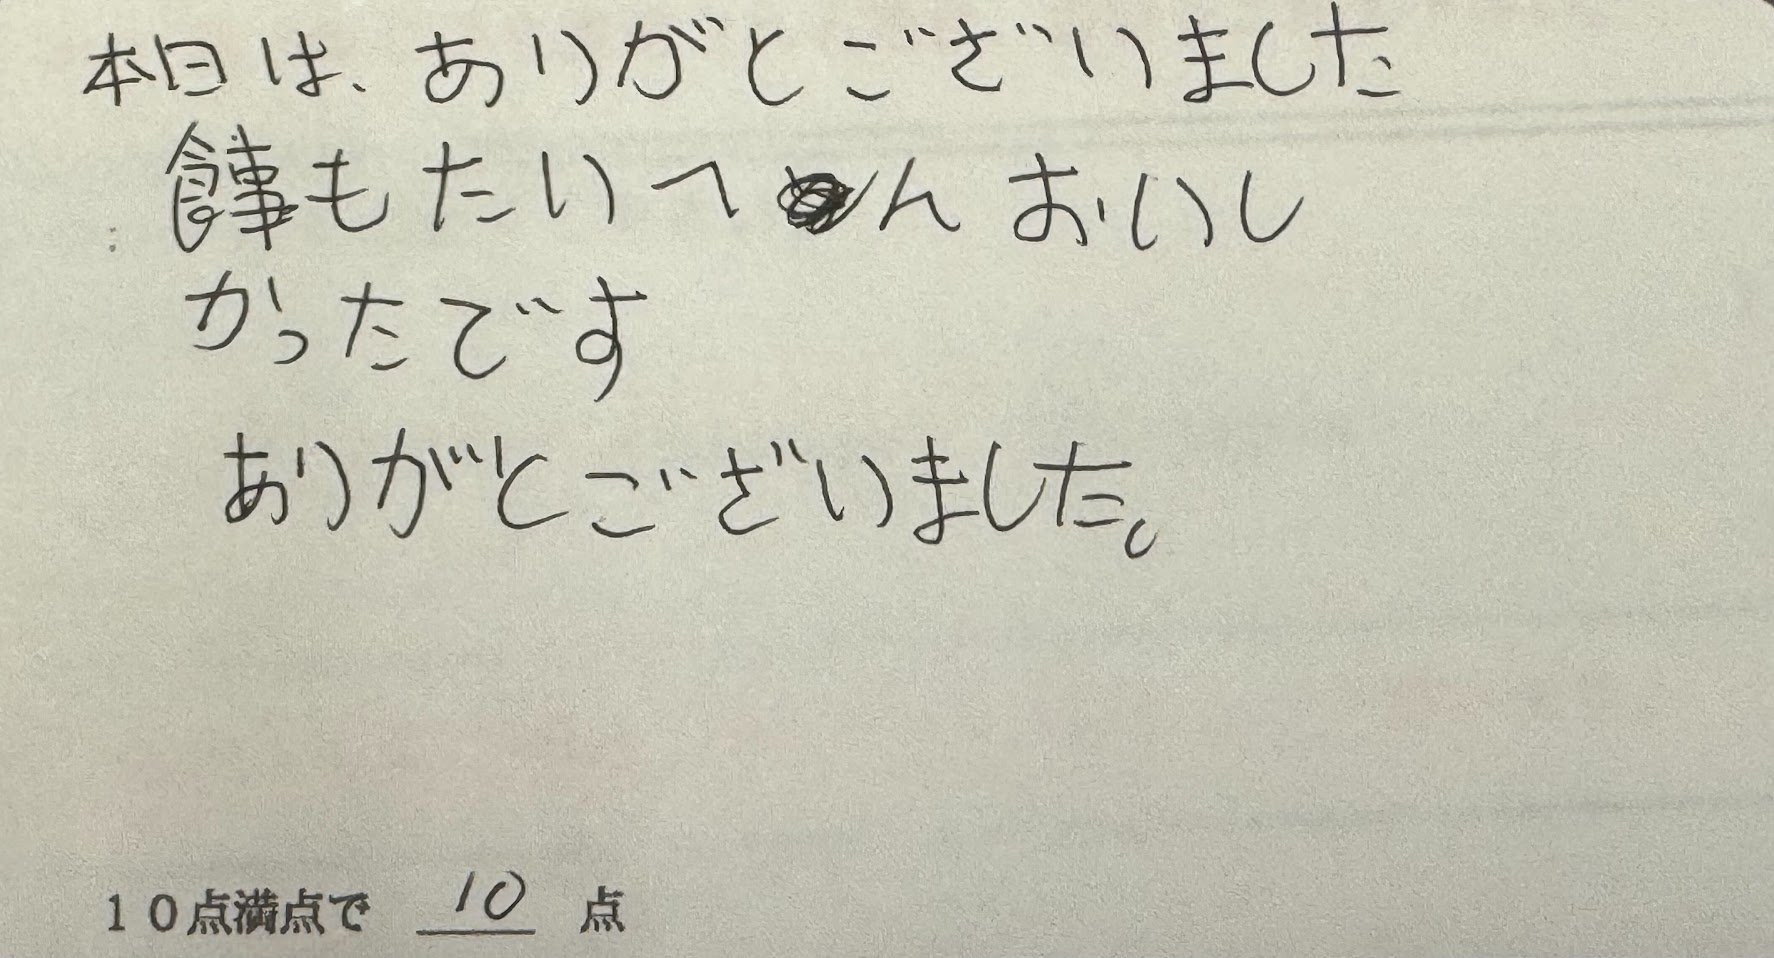 本日は、ありがとございました
食事もたいへんおいし
かったです
ありがとございました。
10点満点で 10 点